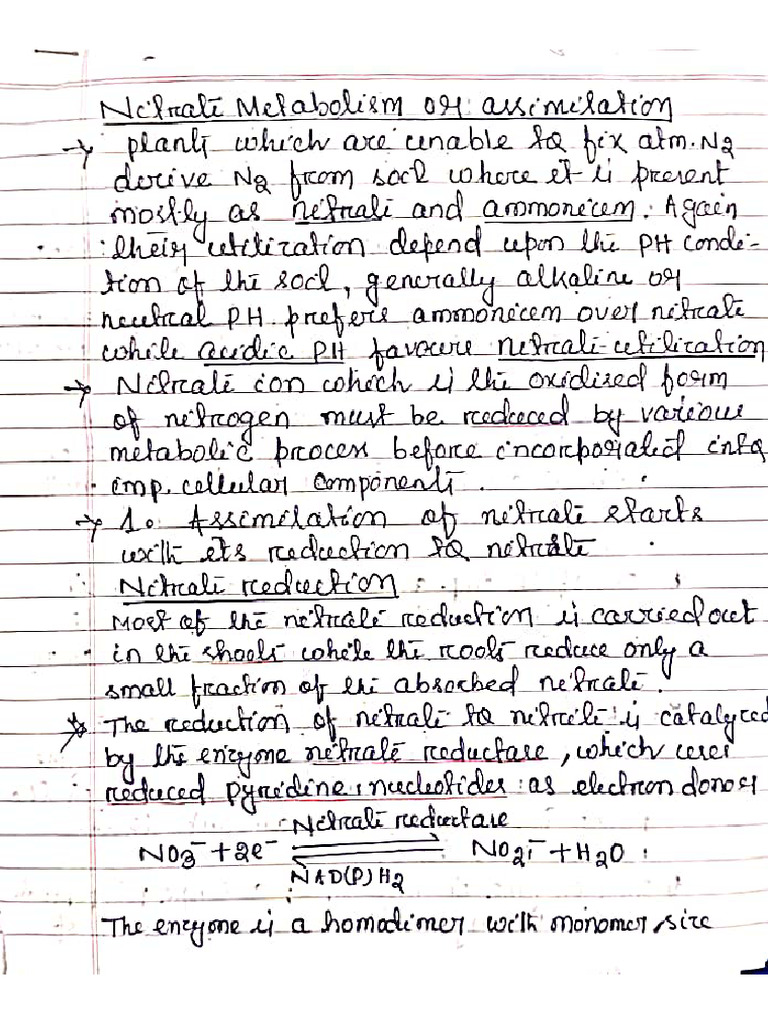 Nitrate Metabolism or assimilation
→ plants which are unable to fix atm. N2
derive N2 from soil where it is present
mostly as nitrate and ammonium. Again
their utilization depend upon the PH condi-
tion of the soil, generally alkaline or
neutral PH prefers ammonium over nitrate
while acidic PH favours nitrate-utilization
→ Nitrate ion which is the oxidised form
of nitrogen must be reduced by various
metabolic process before incorporated into
imp. cellular components.
→ 1. Assimilation of nitrate starts
with its reduction to
Nitrate reduction
Most of the nitrate reduction is carried out
in the shoots while the roots reduce only a
small fraction of the absorbed nitrate.
→ The reduction of nitrate to nitrite is catalyzed
by the enzyme nitrate reductase, which uses
reduced pyridine nucleotides as electron donor
Nitrate reductase
NO3- + 2e- ⇌ NO2- + H2O
NAD(P)H2
The enzyme is a homodimer with monomer size